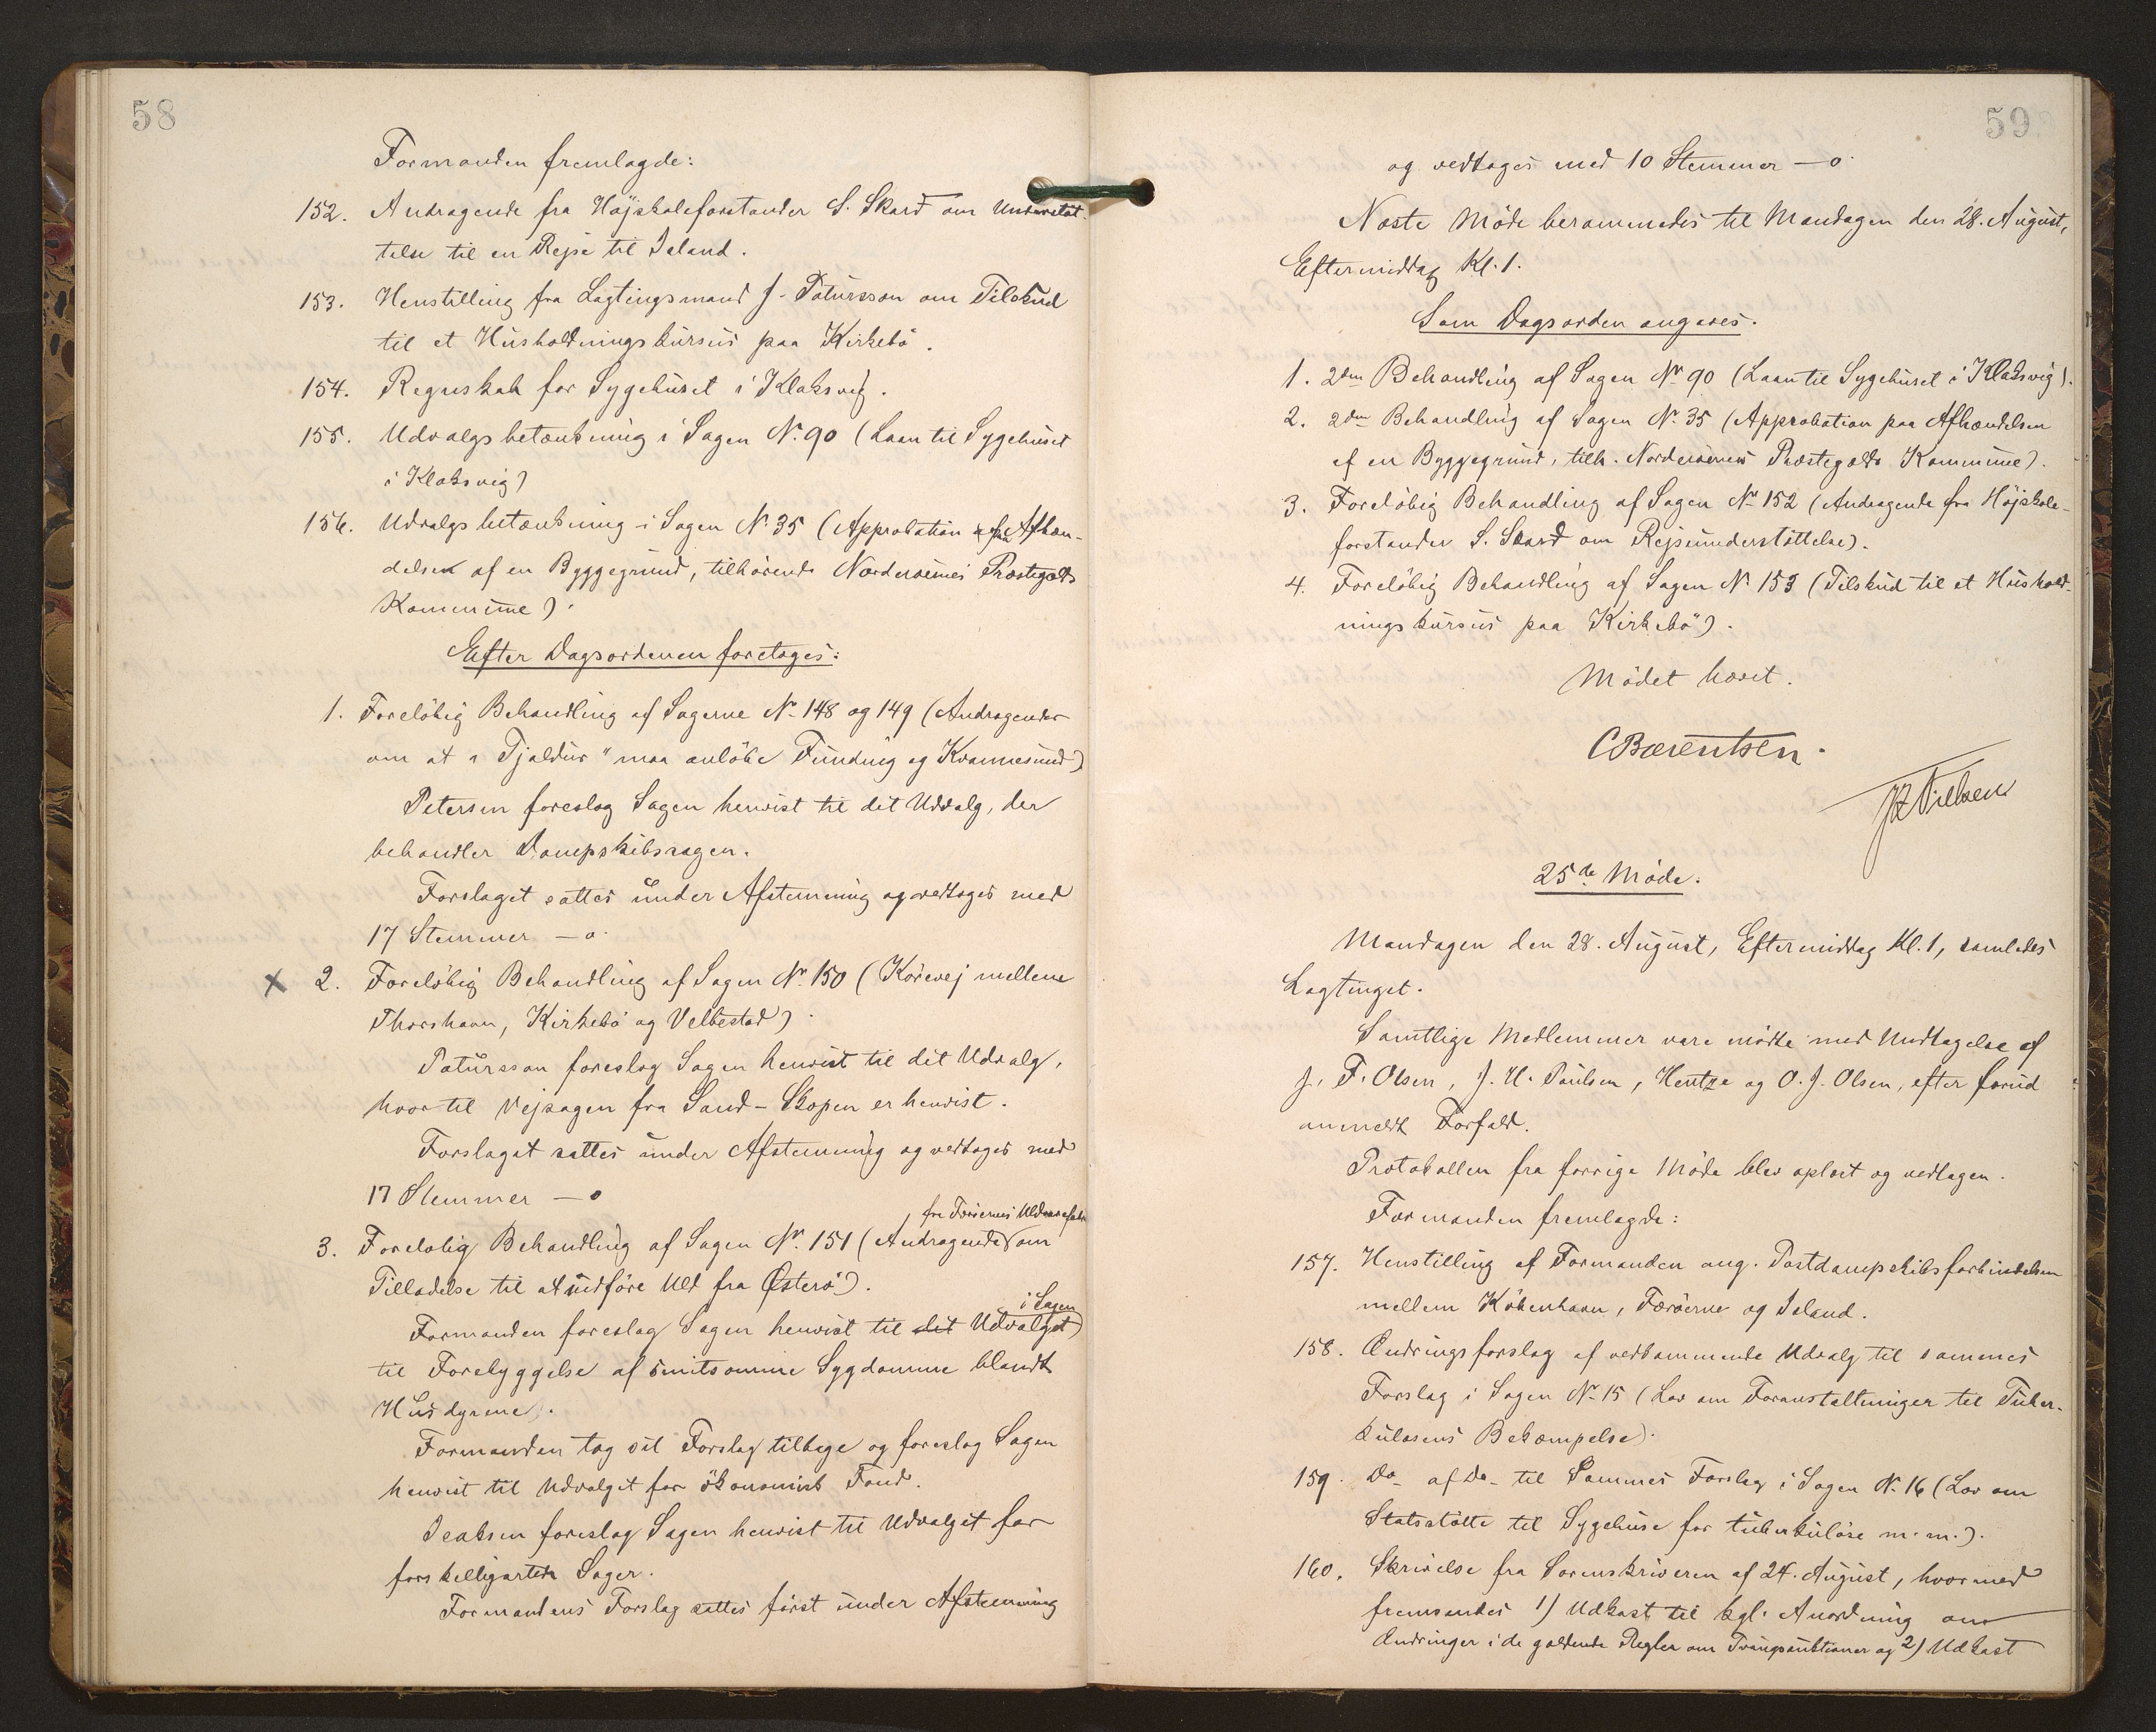 58
Formanden fremlagde:
152. Andragende fra Højskoleforstander S. Skard om Understøt-
telse til en Rejse til Island.
153. Henstilling fra Lagtingsmand J. Patursson om Tilskud
til et Husholdningskursus paa Kirkebö.
154. Regnskab for Sygehuset i Klaksvig.
155. Udvalgsbetænkning i Sagen No. 90 (Laan til Sygehuset
i Klaksvig)
156. Udvalgsbetænkning i Sagen No. 35 (Approbation paa Afhæn-
delsen af en Byggegrund, tilhörende Norderöernes Præstegælds
Kommune).
Efter Dagsordenen foretoges:
1. Forelöbig Behandling af Sagerne No. 148 og 149 (Andragender
om at "Tjaldur" maa anlöbe Funding og Kvannesund)
Petersen foreslog Sagen henvist til det Udvalg, der
behandler Dampskibssagen.
Forslaget sattes under Afstemning og vedtoges med
17 Stemmer – o.
x 2. Forelöbig Behandling af Sagen No. 150 (Körevej mellem
Thorshavn, Kirkebö og Velbestad).
Patursson foreslog Sagen henvist til det Udvalg,
hvortil Vejsagen fra Sand – Skopen er henvist.
Forslaget sattes under Afstemning og vedtoges med
17 Stemmer – o
fra Færöernes
3. Forelöbig Behandling af Sagen No. 151 (Andragende om
Tilladelse til at udföre Uld fra Österö).
i Sagen
Formanden foreslog Sagen henvist til det Udvalget
til Forebyggelse af smitsomme Sygdomme blandt
Husdyrene.
Formanden tog sit Forslag tilbage og foreslog Sagen
henvist til Udvalget for ökonomisk Fond.
Isaksen foreslog Sagen henvist til Udvalget for
forskelligartede Sager.
Formandens Forslag sattes först under Afstemning
59
og vedtoges med 10 Stemmer – o.
Næste Möde berammedes til Mandagen den 28. August,
Eftermiddag Kl. 1.
Som Dagsorden angaves.
1. 2den Behandling af Sagen No. 90 (Laan til Sygehuset i Klaksvig).
2. 2den Behandling af Sagen No. 35 (Approbation paa Afhændelsen
af en Byggegrund, tilh. Norderöernes Præstegælds Kommune).
3. Forelöbig Behandling af Sagen No. 152 (Andragende fra Højskole-
forstander S. Skard om Rejseunderstöttelse).
4. Forelöbig Behandling af Sagen No. 153 (Tilskud til et Hushold-
ningskursus paa Kirkebö).
Mödet hævet.
CBærentsen.
25de Möde.
Mandagen den 28. August, Eftermiddag Kl. 1, samledes
Lagtinget.
Samtlige Medlemmer vare mödte med Undtagelse af
J. F. Olsen, J. H. Poulsen, Hentze og O. J. Olsen, efter forud
anmeldt Forfald.
Protokollen fra forrige Möde blev oplæst og vedtagen.
Formanden fremlagde:
157. Henstilling af Formanden ang. Postdampskibsforbindelsen
mellem Köbenhavn, Færöerne og Island.
158. Ændringsforslag af vedkommende Udvalg til sammes
Forslag i Sagen No. 15 (Lov om Foranstaltninger til Tuber-
kulosens Bekæmpelse).
159. Do. af Do. til Sammes Forslag i Sagen No. 16 (Lov om
Statsstötte til Sygehuse for tuberkulöse m. m.).
160. Skrivelse fra Sorenskriveren af 24. August, hvormed
fremsendes 1) Udkast til kgl. Anordning om
Ændringer i de gældende Regler om Tvangsauktioner og 2) Udkast